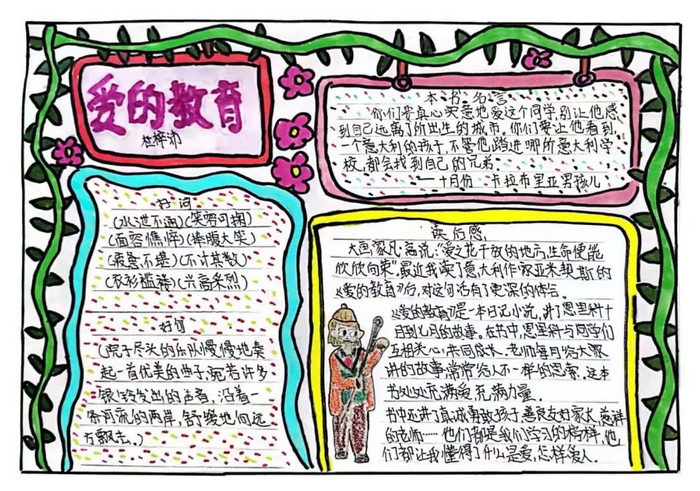 爱的教育
杜梓沛
本书名言
你们要真心实意地爱这个同学,别让他感
到自己远离了所出生的城市,你们要让他看到,
一个意大利的孩子,不管他踏进哪所意大利学
校,都会找到自己的兄弟
——十月份 卡拉布里亚男孩儿
好词
(水泄不通)(笑容可掬)
(面容憔悴)(捧腹大笑)
(疲惫不堪)(不计其数)
(衣衫褴褛)(兴高采烈)
好句
(院子尽头的乐队慢慢地奏
起一首优美的曲子,宛若许多
银铃发出的声音,沿着一
条河流的两岸,舒缓地向远
方飘去。)
读后感
大画家凡·高说:“爱之花开放的地方,生命便能
欣欣向荣”最近我读了意大利作家亚米契斯的
《爱的教育》后,对这句话有了更深的体会。
《爱的教育》是一本日记小说,讲了恩里科十
月到七月的故事。在书中,恩里科与同学们
互相关心,共同成长。老师每月给大家
讲的故事,常常给人不一样的思索。这本
书处处充满爱,充满力量。
书中还讲了真诚勇敢孩子,善良友好家长,慈祥
的老师……他们都是我们学习的榜样,他
们都让我懂得了什么是爱,怎样做人。